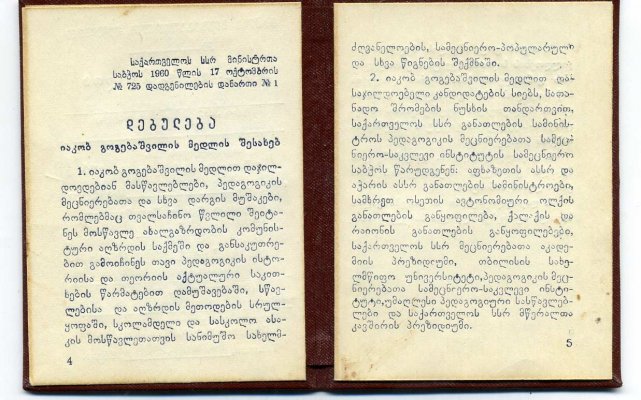 საქართველოს სსრ მინისტრთა
საბჭოს 1960 წლის 17 ოქტომბრის
№ 725 დადგენილების დანართი № 1
დებულება
იაკობ გოგებაშვილის მედლის შესახებ
1. იაკობ გოგებაშვილის მედლით დაჯილ-
დოვდებიან მასწავლებლები, პედაგოგიკის
მეცნიერებათა და სხვა დარგის მუშაკები,
რომლებმაც თვალსაჩინო წვლილი შეიტა-
ნეს მოსწავლე ახალგაზრდობის კომუნის-
ტური აღზრდის საქმეში და განსაკუთრე-
ბით გამოიჩინეს თავი პედაგოგიკის ისტო-
რიისა და თეორიის აქტუალური საკით-
ხების წარმატებით დამუშავებაში, სწავ-
ლებისა და აღზრდის მეთოდების სრულ-
ყოფაში, სკოლამდელი და სასკოლო ასა-
კის მოსწავლეთათვის სანიმუშო სახელმ-
4
ძღვანელოების, სამეცნიერო-პოპულარული
და სხვა წიგნების შექმნაში.
2. იაკობ გოგებაშვილის მედლით და-
საჯილდოებელი კანდიდატების სიებს, სათა-
ნადო შრომების ნუსხის თანდართვით,
საქართველოს სსრ განათლების სამინის-
ტროს პედაგოგიკის მეცნიერებათა სამეც-
ნიერო-საკვლევი ინსტიტუტის სამეცნიერო
საბჭოს წარუდგენენ: აფხაზეთის ასსრ და
აჭარის ასსრ განათლების სამინისტროები,
სამხრეთ ოსეთის ავტონომიური ოლქის
განათლების განყოფილება, ქალაქის და
რაიონის განათლების განყოფილებები,
საქართველოს სსრ მეცნიერებათა აკადე-
მიის პრეზიდიუმი, თბილისის სახე-
ლმწიფო უნივერსიტეტი,პედაგოგიკის მეც-
ნიერებათა სამეცნიერო-საკვლევი ინსტი-
ტუტი,უმაღლესი პედაგოგიური სასწავლებ-
ლები და საქართველოს სსრ მწერალთა
კავშირის პრეზიდიუმი.
5